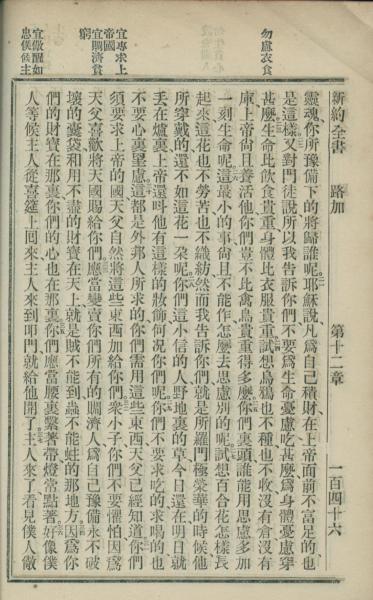 勿慮衣食
宜專求上
帝國
宜賙濟貧
窮
宜儆醒如
忠僕候主
新約全書 路加 第十二章 一百四十六
靈魂、你所豫備下的、將歸誰呢、耶穌說、凡爲自己積財、在上帝面前不富足的、也
是這樣、又對門徒說、所以我告訴你們、不要爲生命憂慮吃甚麼、爲身體憂慮穿
甚麼、生命比飲食貴重、身體比衣服貴重、試想烏鴉、也不種、也不收、沒有倉、沒有
庫、上帝尙且養活他、你們豈不比禽鳥貴重得多麼、你們裏頭誰能用思慮多加
一刻生命呢、這最小的事尙且不能作、怎麼去思慮別的呢、試想百合花、怎樣長
起來、這花也不勞苦、也不織紡、然而我告訴你們、就是所羅門極榮華的時候、他
所穿戴的、還不如這花一朵呢、你們這小信的人、野地裏的草、今日還在、明日就
丟在爐裏、上帝還呌他有這樣的妝飾、何况你們呢、你們不要求吃的、求喝的、也
不要心裏罣慮、這都是外邦人所求的、你們需用這些東西、天父已經知道、你們
須要求上帝的國、天父自然將這些東西加給你們、衆小子、你們不要懼怕、因爲
天父喜歡將天國賜給你們、應當變賣你們所有的、賙濟人、爲自己豫備永不破
壞的囊袋、和用不盡的財寶在天上、就是賊不能到、蟲不能蛀的那地方、因爲你
們的財寶在那裏、你們的心也在那裏、你們應當腰裏繫著帶、燈常點著、好像僕
人等候主人、從喜筵上囘來、主人來到叩門、就給他開了、主人來了、看見僕人儆